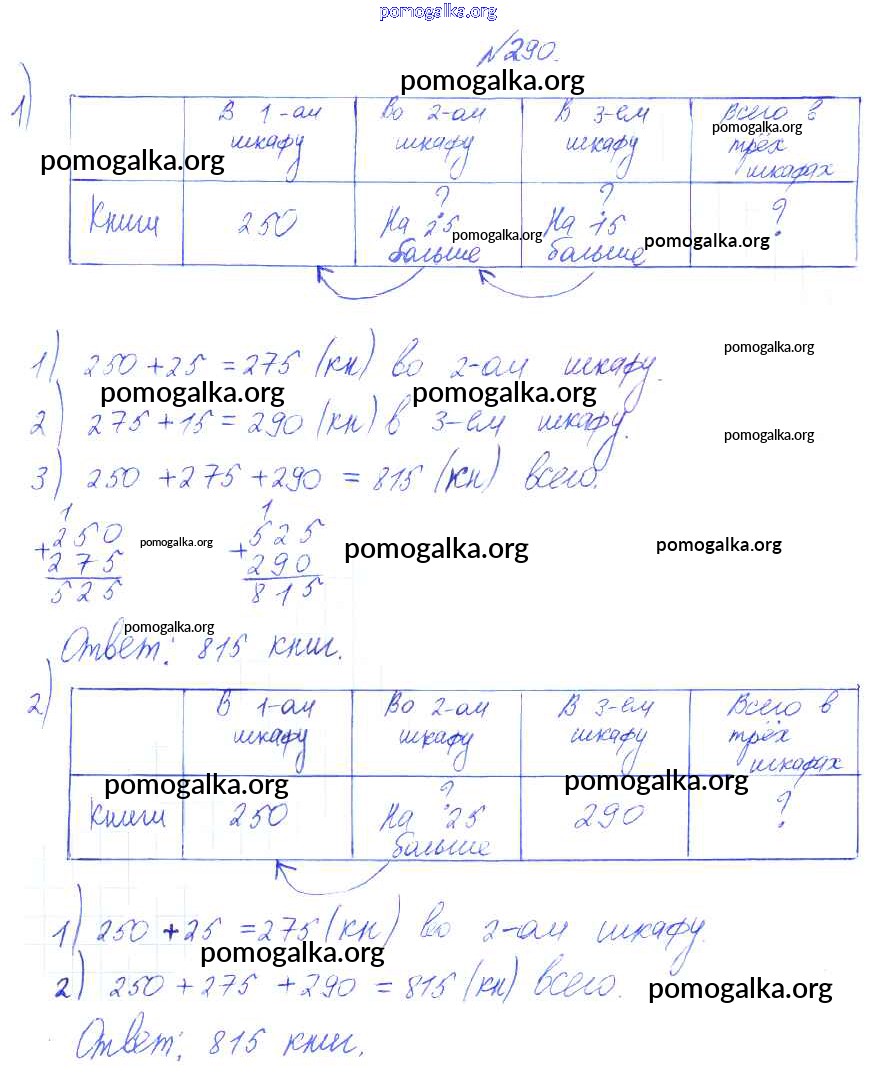 pomogalka.org
№290.
pomogalka.org
1)
В 1-ом шкафу Во 2-ом шкафу В 3-ем шкафу Всего в трёх шкафах
pomogalka.org pomogalka.org
Книги 250 ? На 25 больше ? На 15 больше ?
pomogalka.org pomogalka.org
1) 250 + 25 = 275 (кн) во 2-ом шкафу.
pomogalka.org
pomogalka.org pomogalka.org
2) 275 + 15 = 290 (кн) в 3-ем шкафу.
pomogalka.org
3) 250 + 275 + 290 = 815 (кн) всего.
1 1
+250 +525
pomogalka.org pomogalka.org pomogalka.org
275 290
525 815
pomogalka.org
Ответ: 815 книг.
2)
В 1-ом шкафу Во 2-ом шкафу В 3-ем шкафу Всего в трёх шкафах
pomogalka.org pomogalka.org
Книги 250 ? На 25 больше 290 ?
1) 250 + 25 = 275 (кн) во 2-ом шкафу.
pomogalka.org
2) 250 + 275 + 290 = 815 (кн) всего.
pomogalka.org
Ответ: 815 книг.